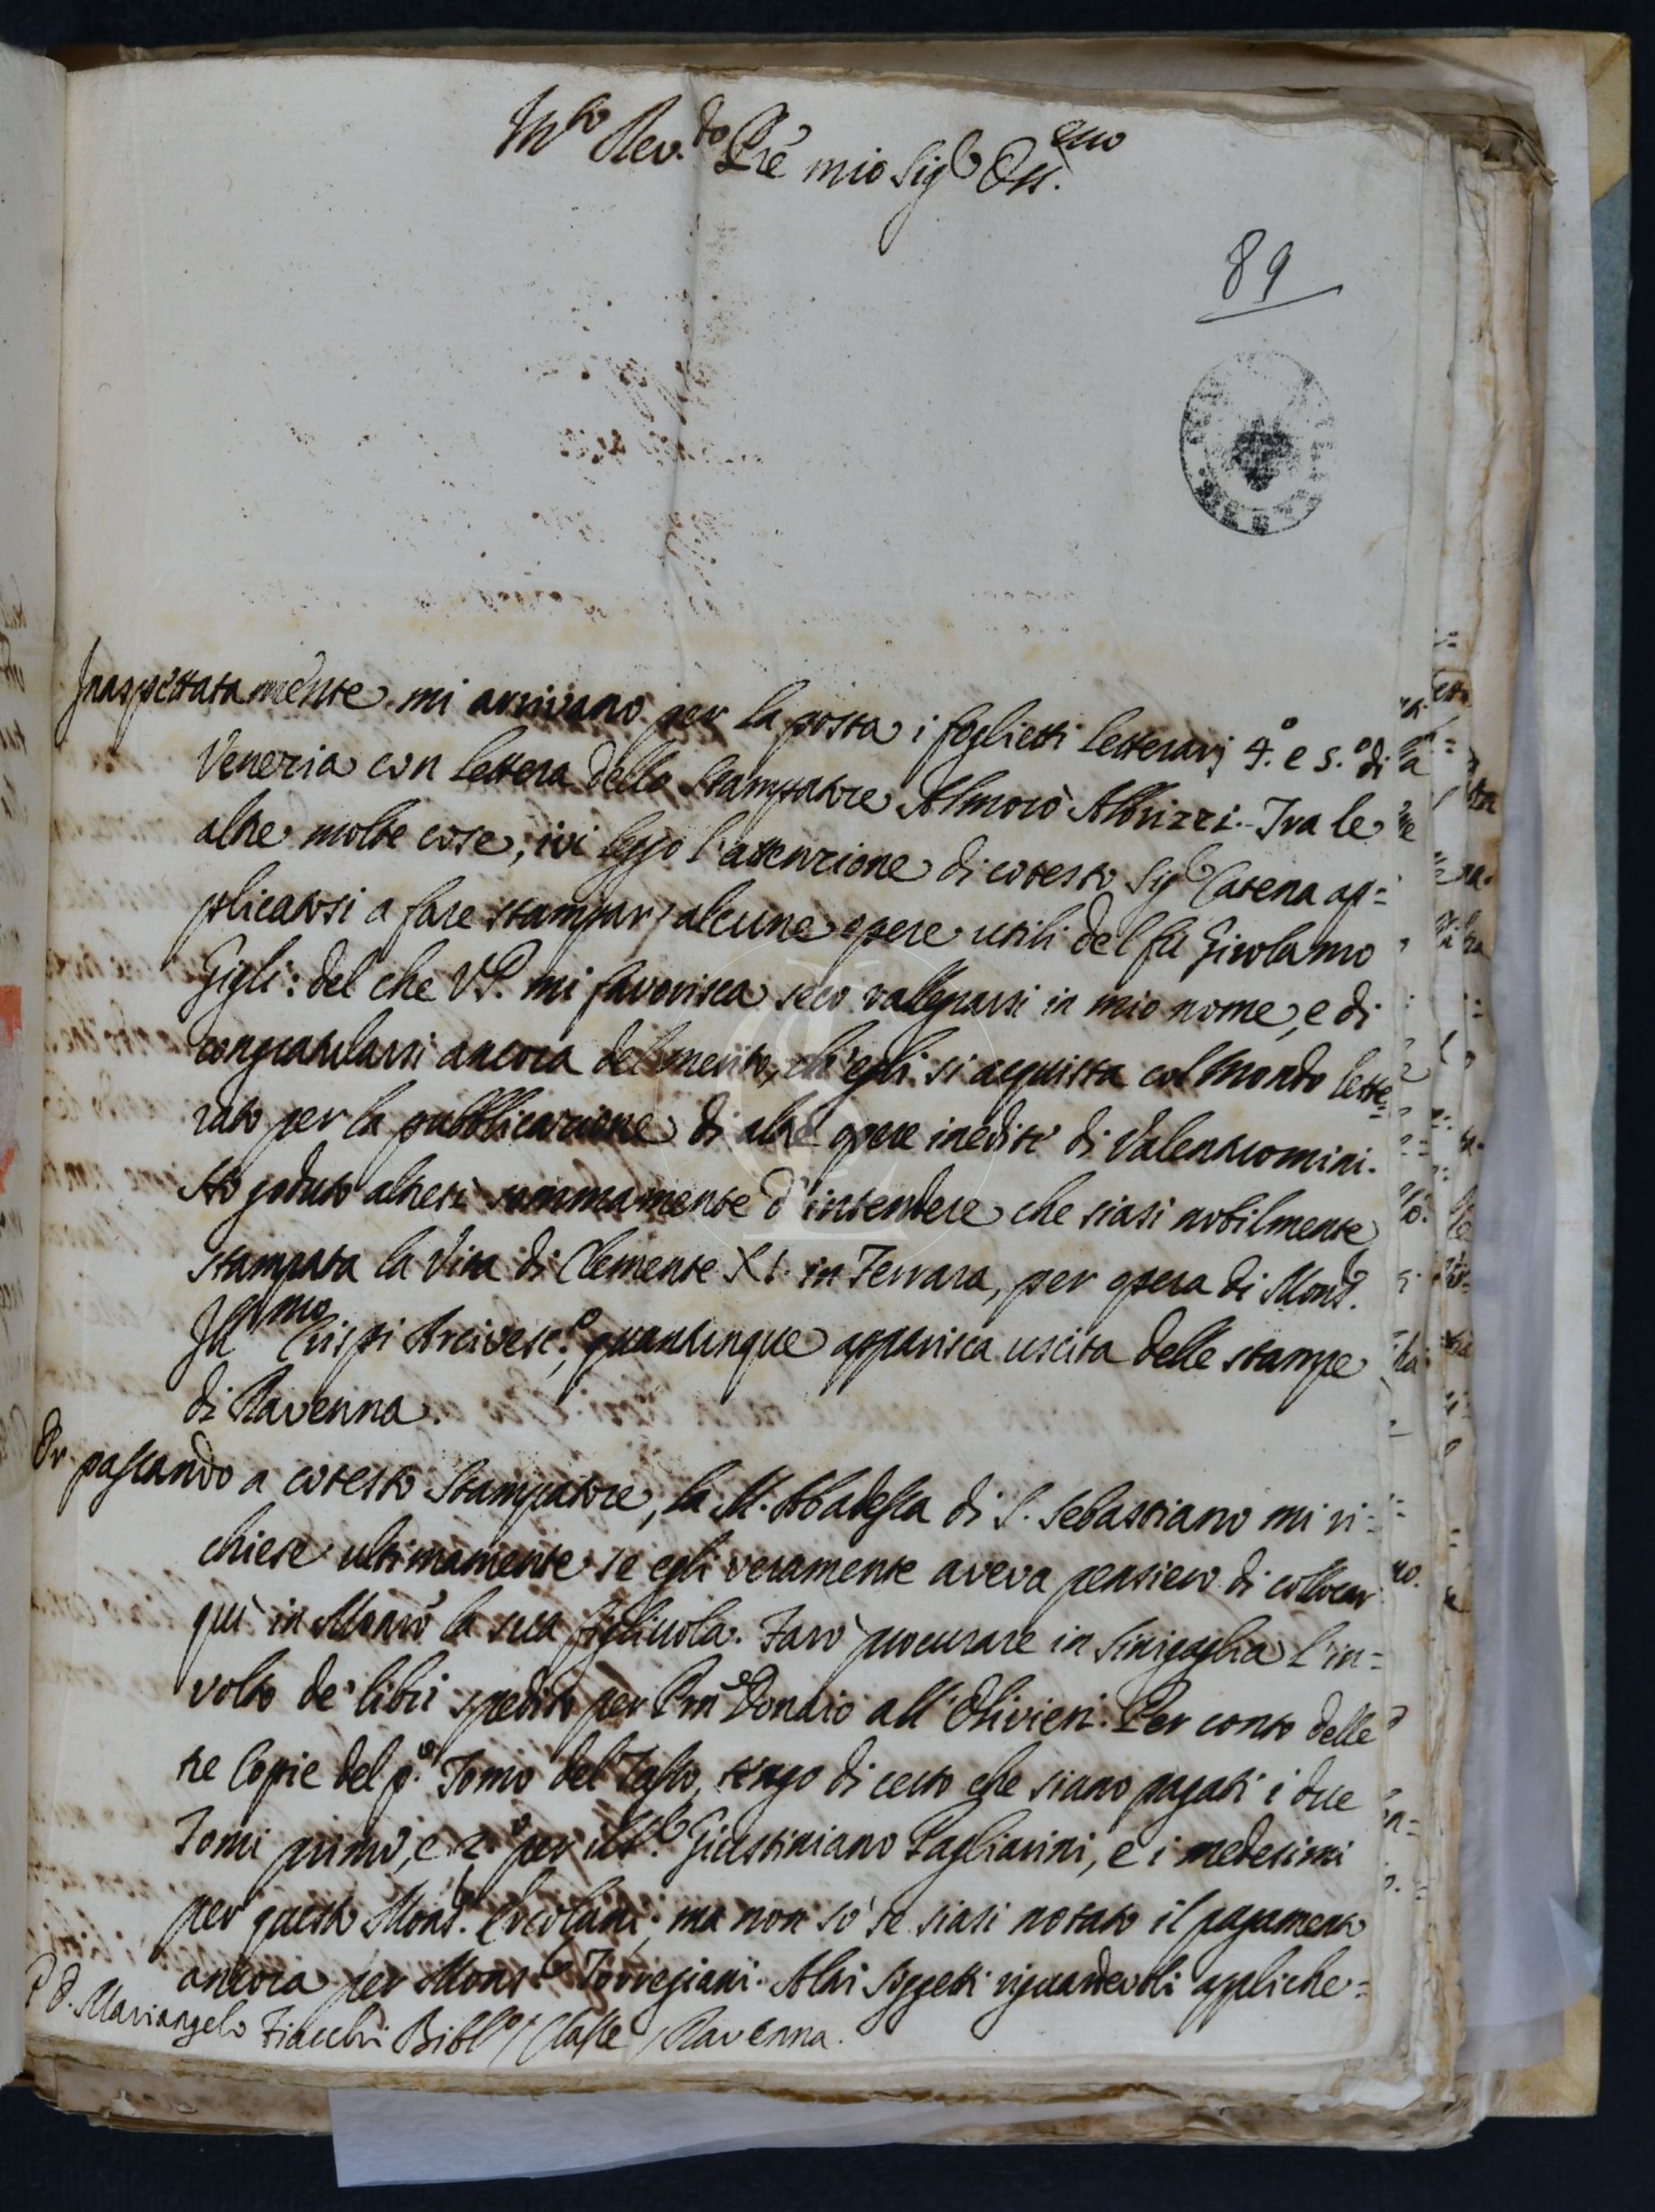 M.to Rev.do Prê mio Sig.r Oss.mo
89
Inaspettatamente mi arrivano per la posta i foglietti letterarj 4.° e 5.° di
Venezia con lettera dello Stampatore Almorò Albrizzi. Tra le
altre molte cose, ivi leggo l'attenzione di cotesto Sig.r Catena ap=
plicatosi a fare stampar alcune opere utili del fù Girolamo
Gigli: del che V.P. mi favorisca seco rallegrarsi in mio nome, e di
congratularsi ancora del merito, ch'egli si acquista col Mondo lette=
rato per la pubblicazione di altre opere inedite di Valentuomini.
Ho goduto altresì sommamente d'intendere che siasi nobilmente
stampata la Vita di Clemente XI. in Ferrara, per opera di Mons.r
Ill.mo Crispi Arcivesc.o, quantunque apparisca uscita delle stampe
di Ravenna.
Or passando a cotesto Stampatore, la M. Abadessa di S. Sebastiano mi ri=
chiese ultimamente se egli veramente aveva pensiero di collocar
quì in Monrò la sua figliuola. Farò procurare in Sinigaglia l'in=
volto de' libri spedito per Prñ Donaio all'Olivieri. Per conto delle
tre Copie del p.o Tomo del Tasso, tengo di certo che siano pagati i due
Tomi primo, e 2.o per il S.r Giustiniano Pagliarini, e i medesimi
per questo Mons.r Ercolani; ma non sò se siasi notato il pagamento
ancora per Mons.r Torregiani. Altri soggetti riguardevoli appliche=
P. D. Mariangelo Fiacchi Bibl.o / Classe / Ravenna.